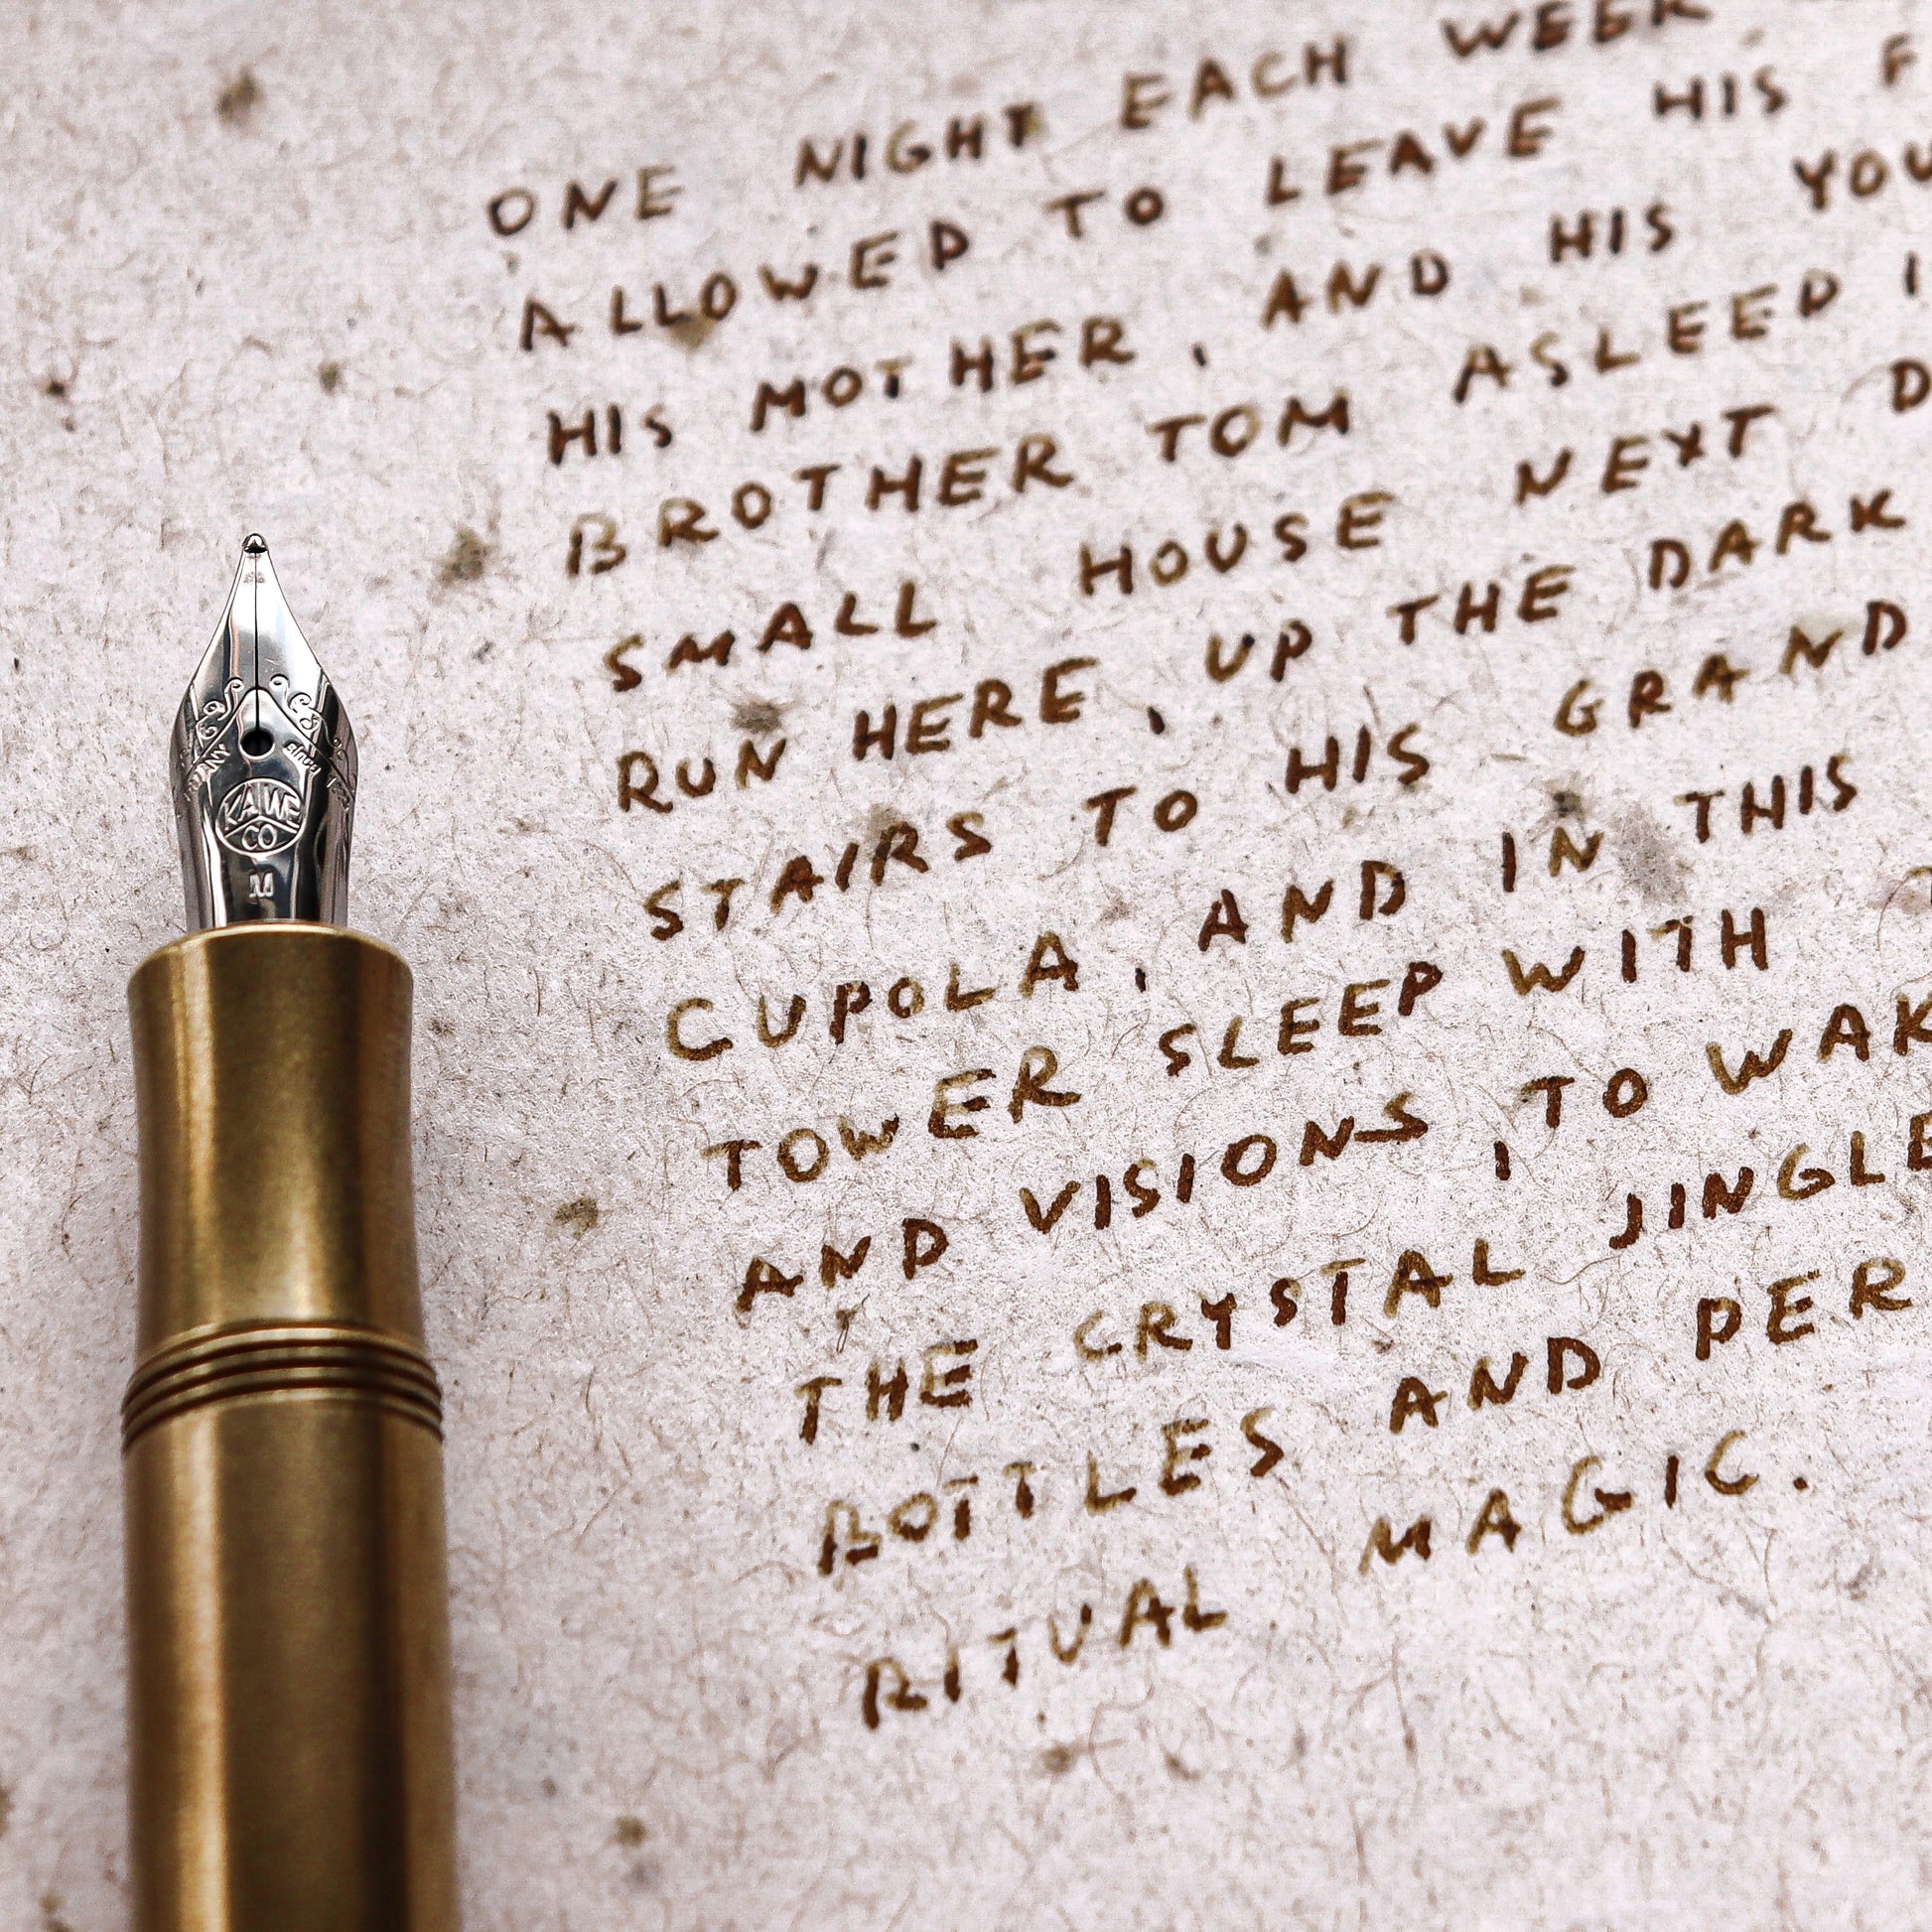 ONE NIGHT EACH WEEK
ALLOWED TO LEAVE HIS F
HIS MOTHER, AND HIS YOU
BROTHER TOM ASLEED I
SMALL HOUSE NEXT D
RUN HERE, UP THE DARK
STAIRS TO HIS GRAND
CUPOLA, AND IN THIS
TOWER SLEEP WITH
AND VISIONS, TO WAK
THE CRYSTAL JINGLE
BOTTLES AND PER
RITUAL MAGIC.
KAWE
CO
M